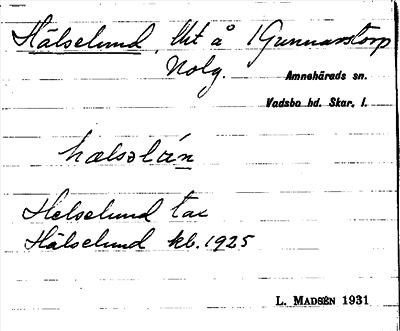 Hälselund, Ut å 1 Gunnarstorp
Nolg.
Amnehärads sn.
Vadsbo hd. Skar. l.
hælsəlɯ́n
Helselund tax
Hälselund kb. 1925
L. MADSÉN 1931